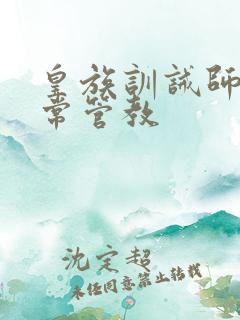 皇族訓誡師
常管教
沈定超
未经同意禁止转载